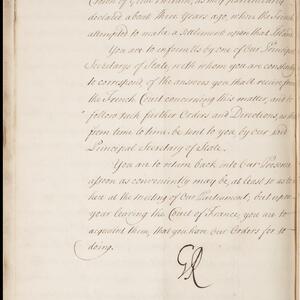 Crown of Great Britain, as was particularly
declared about three Years ago, when the French
attempted to make a Settlement upon that Island.
You are to inform Us by one of Our Principal
Secretarys of State, with whom you are constantly
to correspond, of the answers you shall receive from
the French Court concerning this matter, and to
follow such further Orders and Directions, as shall
from time to time be sent to you, by our said
Principal Secretary of State.
You are to return back into Our Presence
assoon as conveniently may be, at least so as to be
here at the Meeting of our Parliament; but upon
your leaving the Court of France, you are to
acquaint them, that you have our Orders for so
doing.
GR